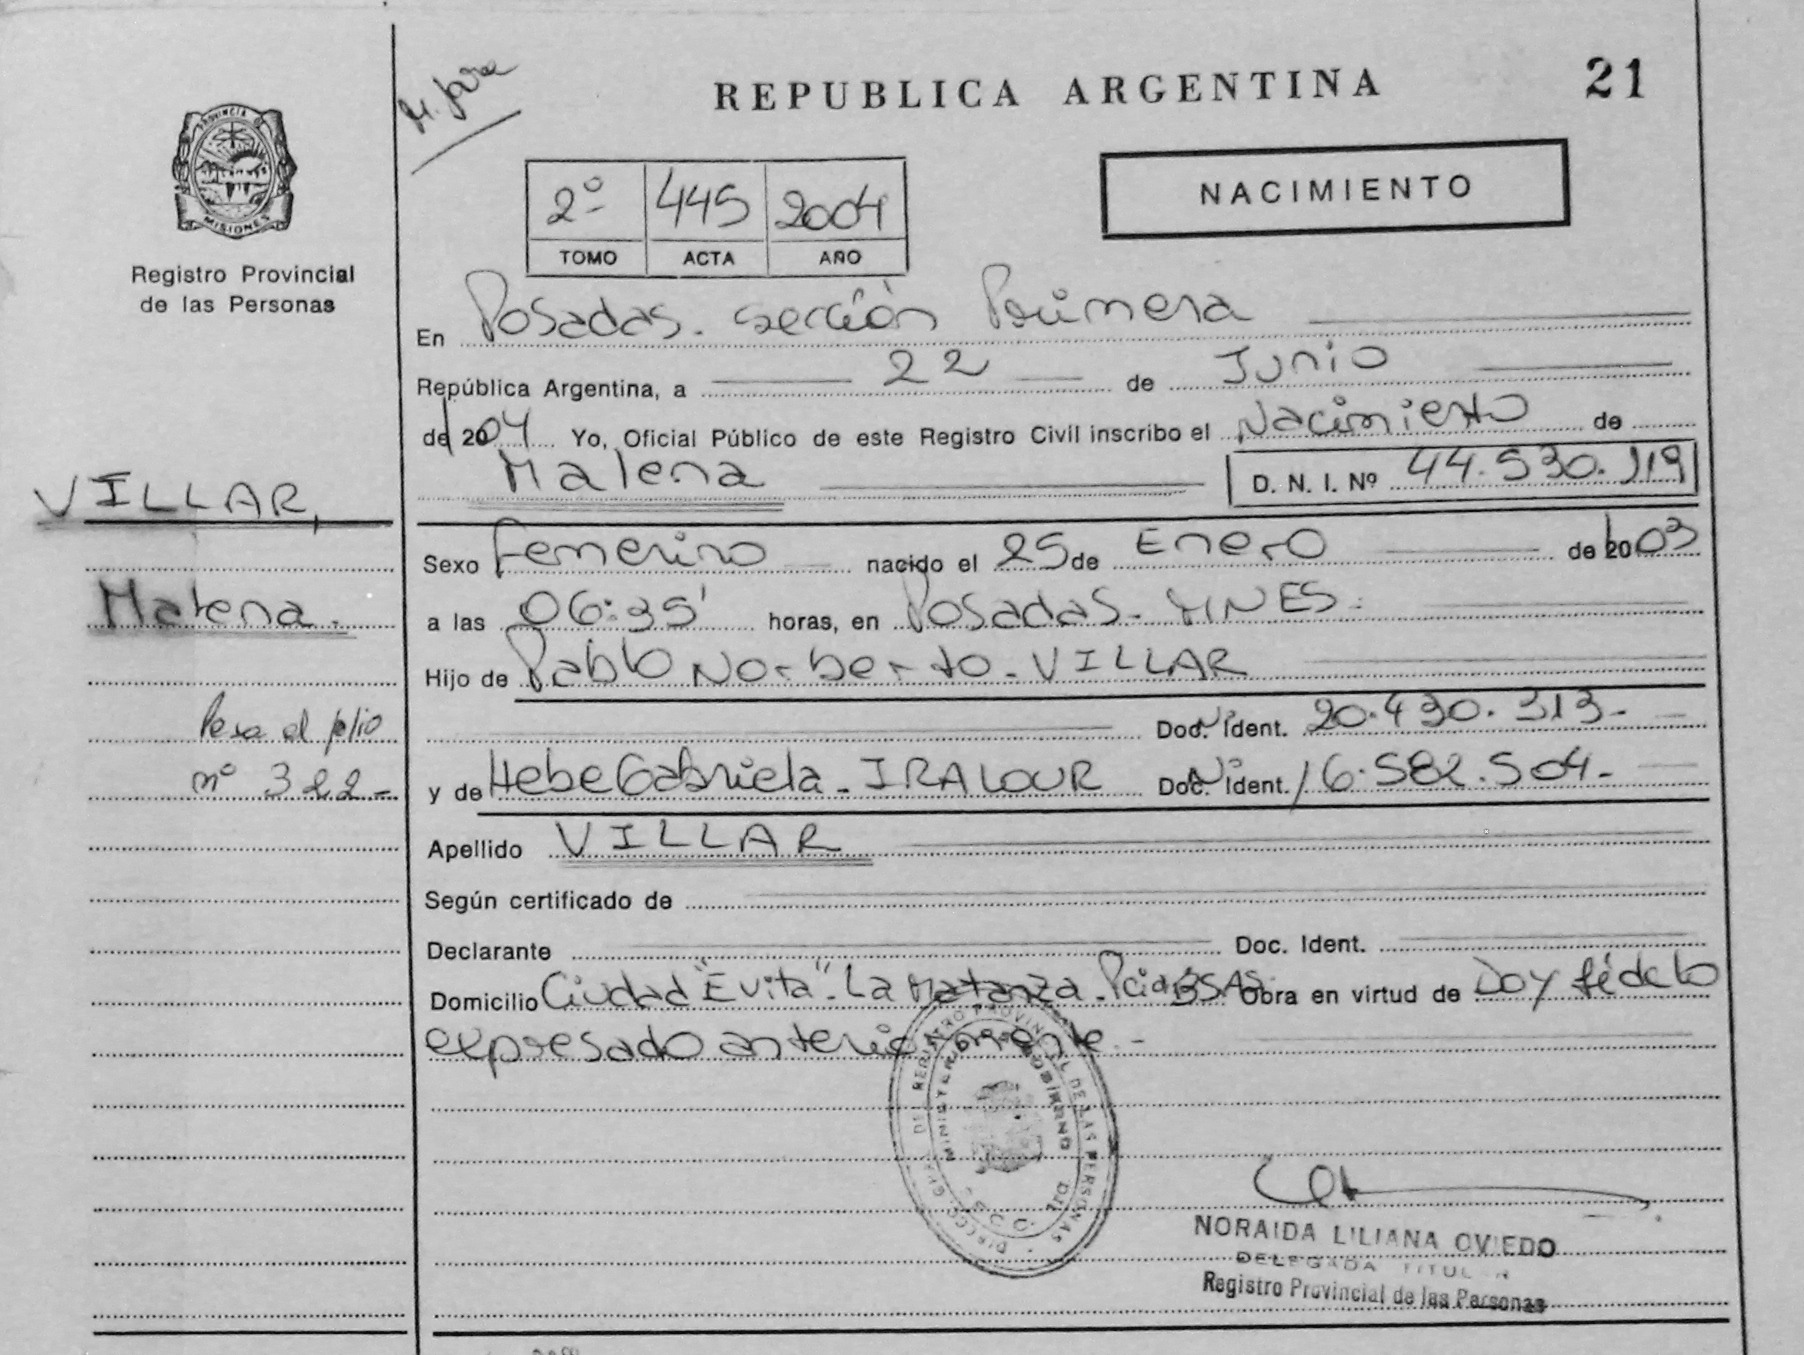 REPUBLICA ARGENTINA 21
PROVINCIA DE
MISIONES
Registro Provincial
de las Personas
2º 445 2004
TOMO ACTA AÑO
NACIMIENTO
En Posadas. sección Primera
República Argentina, a 22 de Junio
de 2004 Yo, Oficial Público de este Registro Civil inscribo el Nacimiento de
Malena D. N. I. Nº 44.530.119
VILLAR,
Malena.
Sexo Femenino nacido el 25 de Enero de 2003
a las 06:35' horas, en Posadas- MNES.
Hijo de Pablo Norberto - VILLAR
Doc. Ident. 20.430.313-
y de Hebe Gabriela - IRALOUR Doc. Ident. 16.582.504-
Pasa al folio
nº 322-
Apellido VILLAR
Según certificado de
Declarante Doc. Ident.
Domicilio Ciudad "Evita". La Matanza. Pcia BSAS. Obra en virtud de Doy fé de lo
expresado anteriormente.-
NORAIDA LILIANA OVIEDO
DELEGADA TITULAR
Registro Provincial de las Personas